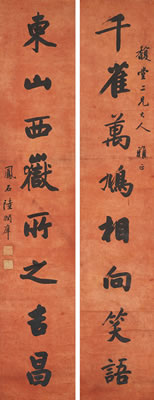 馥堂二兄大人雅正
千雀萬鳩相向笑語
東山西嶽所之吉昌
鳳石陸潤庠